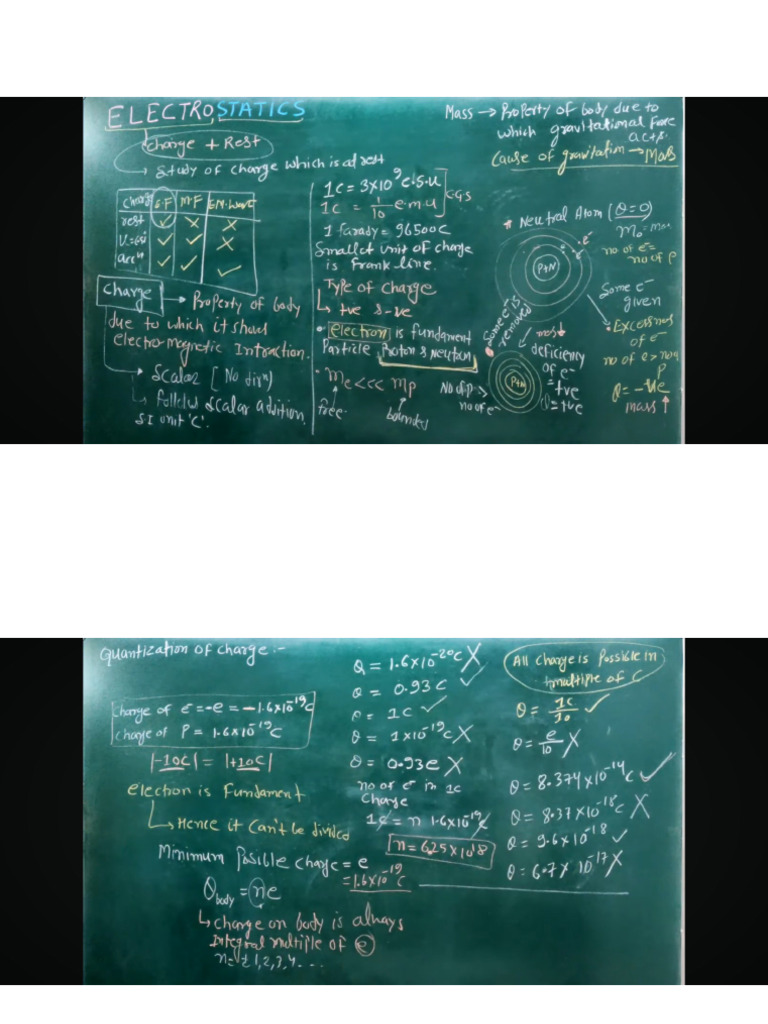 ELECTROSTATICS
Charge + Rest
↳ Study of charge which is at rest
Charge E.F M.F E.M. wave
rest ✓ × ×
✓ ✓ ×
accn ✓ ✓ ✓
Charge → Property of body
due to which it shows
electro-magnetic Intraction.
• Scalar [No dirn]
↳ follow scalar addition
S.I unit 'C'.
1C = 3×10⁹ e.s.u
1C = 1/10 e.m.u
C.G.S
1 farady = 96500C
Smallet unit of charge
is Frank line.
Type of charge
↳ +ve & -ve
• electron is fundament
Particle, Proton & neutron
• Me <<< Mp
free.
bounded
Mass → Property of body due to
which gravitational force
acts.
Cause of gravitation → Mass
* Neutral Atom (Q=0)
e⁻
P+N
no of e⁻=
no of P
Some e⁻ is
removed
Some e⁻
given
mass↓
deficiency
of e⁻
= +ve
Q = +ve
P+N
No of P >
no of e⁻
• Excessness
of e⁻
no of e > no of
P
Q = -ve
mass ↑
Quantization of charge :-
charge of e⁻ = -e = -1.6×10⁻¹⁹C
charge of P = 1.6×10⁻¹⁹C
|-10C| = |+10C|
electron is Fundament
↳ Hence it Can't be divided
Minimum Possible charge = e
= 1.6×10⁻¹⁹C
Qbody = ne
↳ charge on body is always
Integral multiple of e
n = ± 1,2,3,4 . . . .
Q = 1.6×10⁻²⁰C ×
Q = 0.93C ✓
Q = 1C ✓
Q = 1×10⁻¹⁹C ×
Q = 0.93e ×
no of e⁻ in 1C
Charge
1C = n 1.6×10⁻¹⁹C
n = 6.25×10¹⁸
All charge is Possible in
multiple of C
Q = 1C/10 ✓
Q = e/10 ×
Q = 8.374×10⁻¹⁴C ✓
Q = 8.37×10⁻¹⁸C ×
Q = 9.6×10⁻¹⁸ ✓
Q = 6.7×10⁻¹⁷ ×